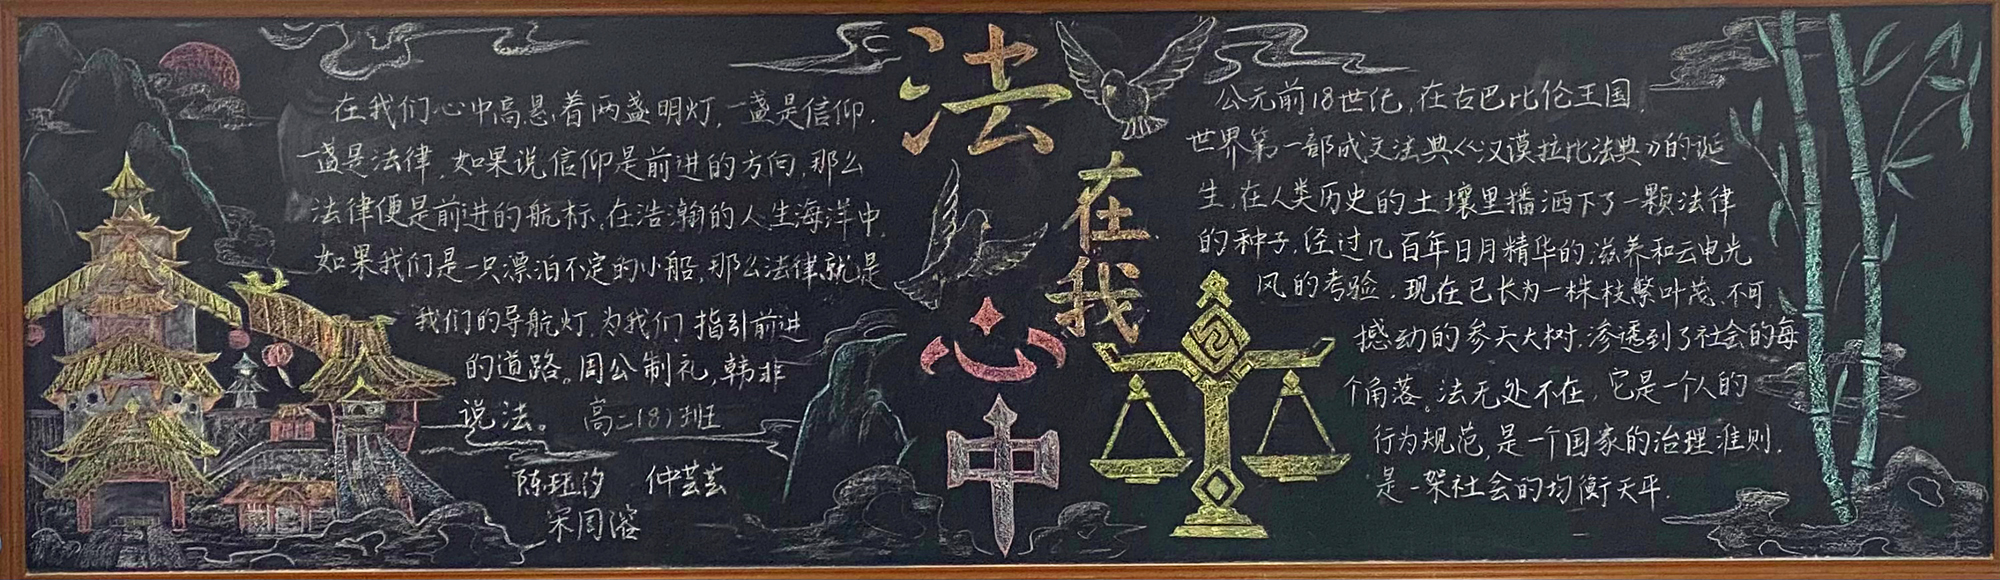 在我们心中高悬着两盏明灯，一盏是信仰，
一盏是法律，如果说信仰是前进的方向，那么
法律便是前进的航标。在浩瀚的人生海洋中，
如果我们是一只漂泊不定的小船，那么法律就是
我们的导航灯，为我们指引前进
的道路。周公制礼，韩非
说法。 高二(8)班
陈珏汐 仲芸芸
宋周溶
法
在我
心中
公元前18世纪，在古巴比伦王国，
世界第一部成文法典《汉谟拉比法典》的诞
生，在人类历史的土壤里播洒下了一颗法律
的种子，经过几百年日月精华的滋养和云电光
风的考验，现在已长为一株枝繁叶茂、不可
撼动的参天大树，渗透到了社会的每
个角落。法无处不在，它是一个人的
行为规范，是一个国家的治理准则，
是一架社会的均衡天平.